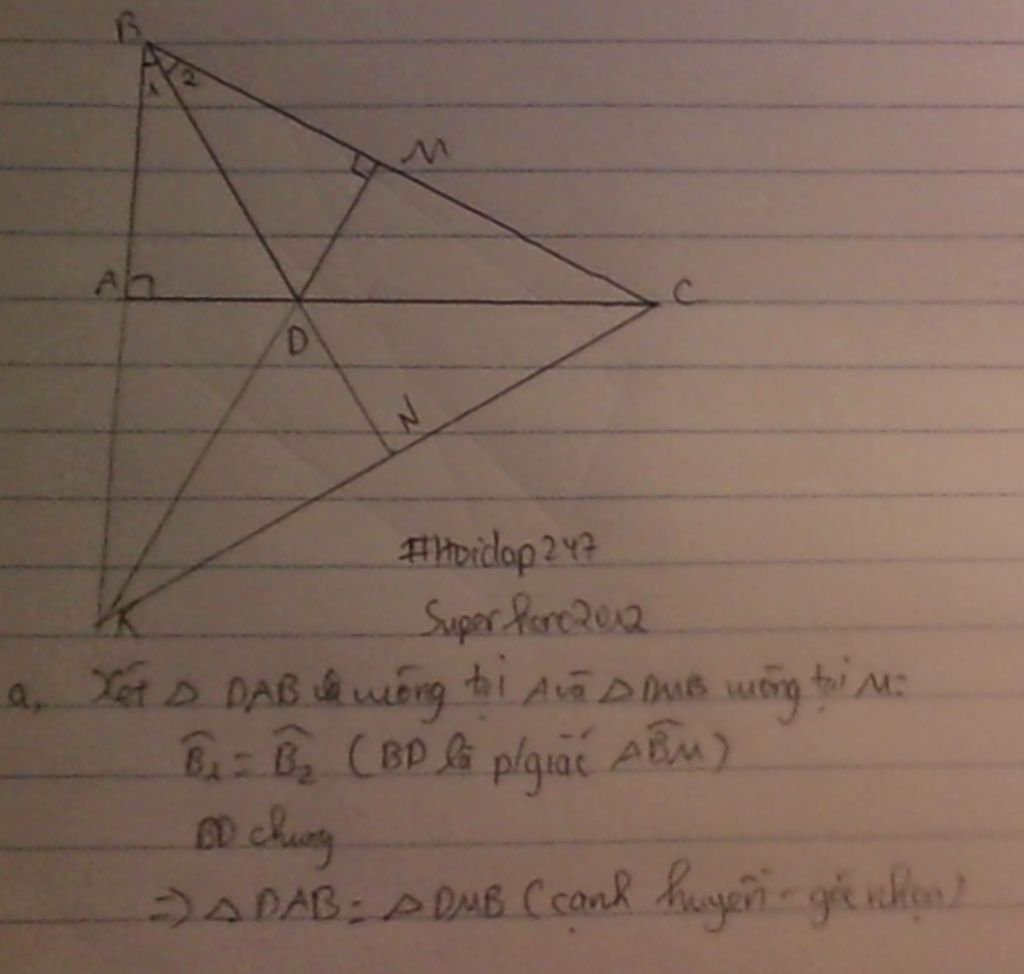 B
1 2
M
A
C
D
N
#Hoidap247
K
a, Xét △ DAB vuông tại A và △ DMB vuông tại M:
B̂₁ = B̂₂ (BD là p/giác AB̂M)
BD chung
=> △ DAB = △ DMB (cạnh huyền - góc nhọn)